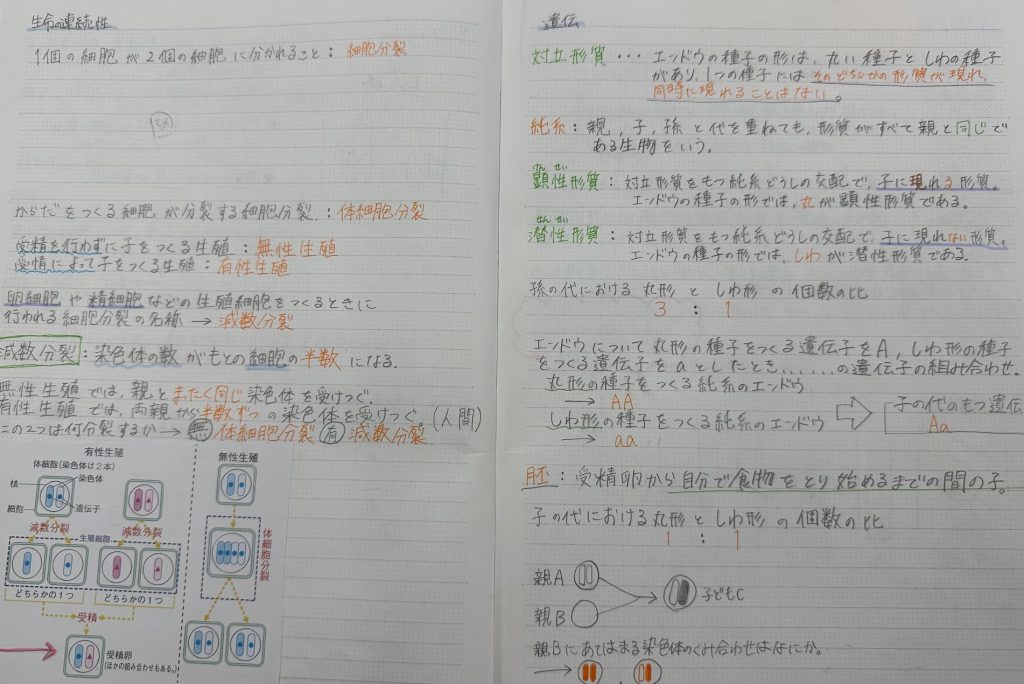 生命の連続性
1個の細胞が2個の細胞に分かれること：細胞分裂
からだをつくる細胞が分裂する細胞分裂．：体細胞分裂
受精を行わずに子をつくる生殖：無性生殖
受情によって子をつくる生殖：有性生殖
卵細胞や精細胞などの生殖細胞をつくるときに
行われる細胞分裂の名称→減数分裂
減数分裂：染色体の数がもとの細胞の半数になる。
無性生殖では，親とまたく同じ染色体を受けつぐ．
有性生殖では，両親から半数ずつの染色体を受けつぐ．(人間)
この2つは何分裂するか→無 体細胞分裂 有 減数分裂
有性生殖
体細胞(染色体は2本)
核
染色体
細胞
遺伝子
減数分裂
減数分裂
生殖細胞
どちらかの1つ
どちらかの1つ
受精
受精卵
(ほかの組み合わせもある。)
無性生殖
体細胞分裂
遺伝
対立形質・・・エンドウの種子の形は，丸い種子としわの種子
があり，1つの種子にはそのどちらかの形質が現れ，
同時に現れることはない。
純系：親，子，孫と代を重ねても，形質がすべて親と同じで
ある生物をいう。
けんせい
顕性形質：対立形質をもつ純系どうしの交配で，子に現れる形質。
エンドウの種子の形では，丸が顕性形質である。
せんせい
潜性形質：対立形質をもつ純系どうしの交配で，子に現れない形質。
エンドウの種子の形では，しわが潜性形質である。
孫の代における丸形としわ形の個数の比
3：1
エンドウについて丸形の種子をつくる遺伝子をA，しわ形の種子
をつくる遺伝子をaとしたとき，．．．．．．の遺伝子の組み合わせ．
丸形の種子をつくる純系のエンドウ
→AA
しわ形の種子をつくる純系のエンドウ
→aa
子の代のもつ遺伝
Aa
胚：受精卵から自分で食物をとり始めるまでの間の子。
子の代における丸形としわ形の個数の比
1：1
親A
子どもC
親B
親Bにあてはまる染色体のくみ合わせはなにか。
→